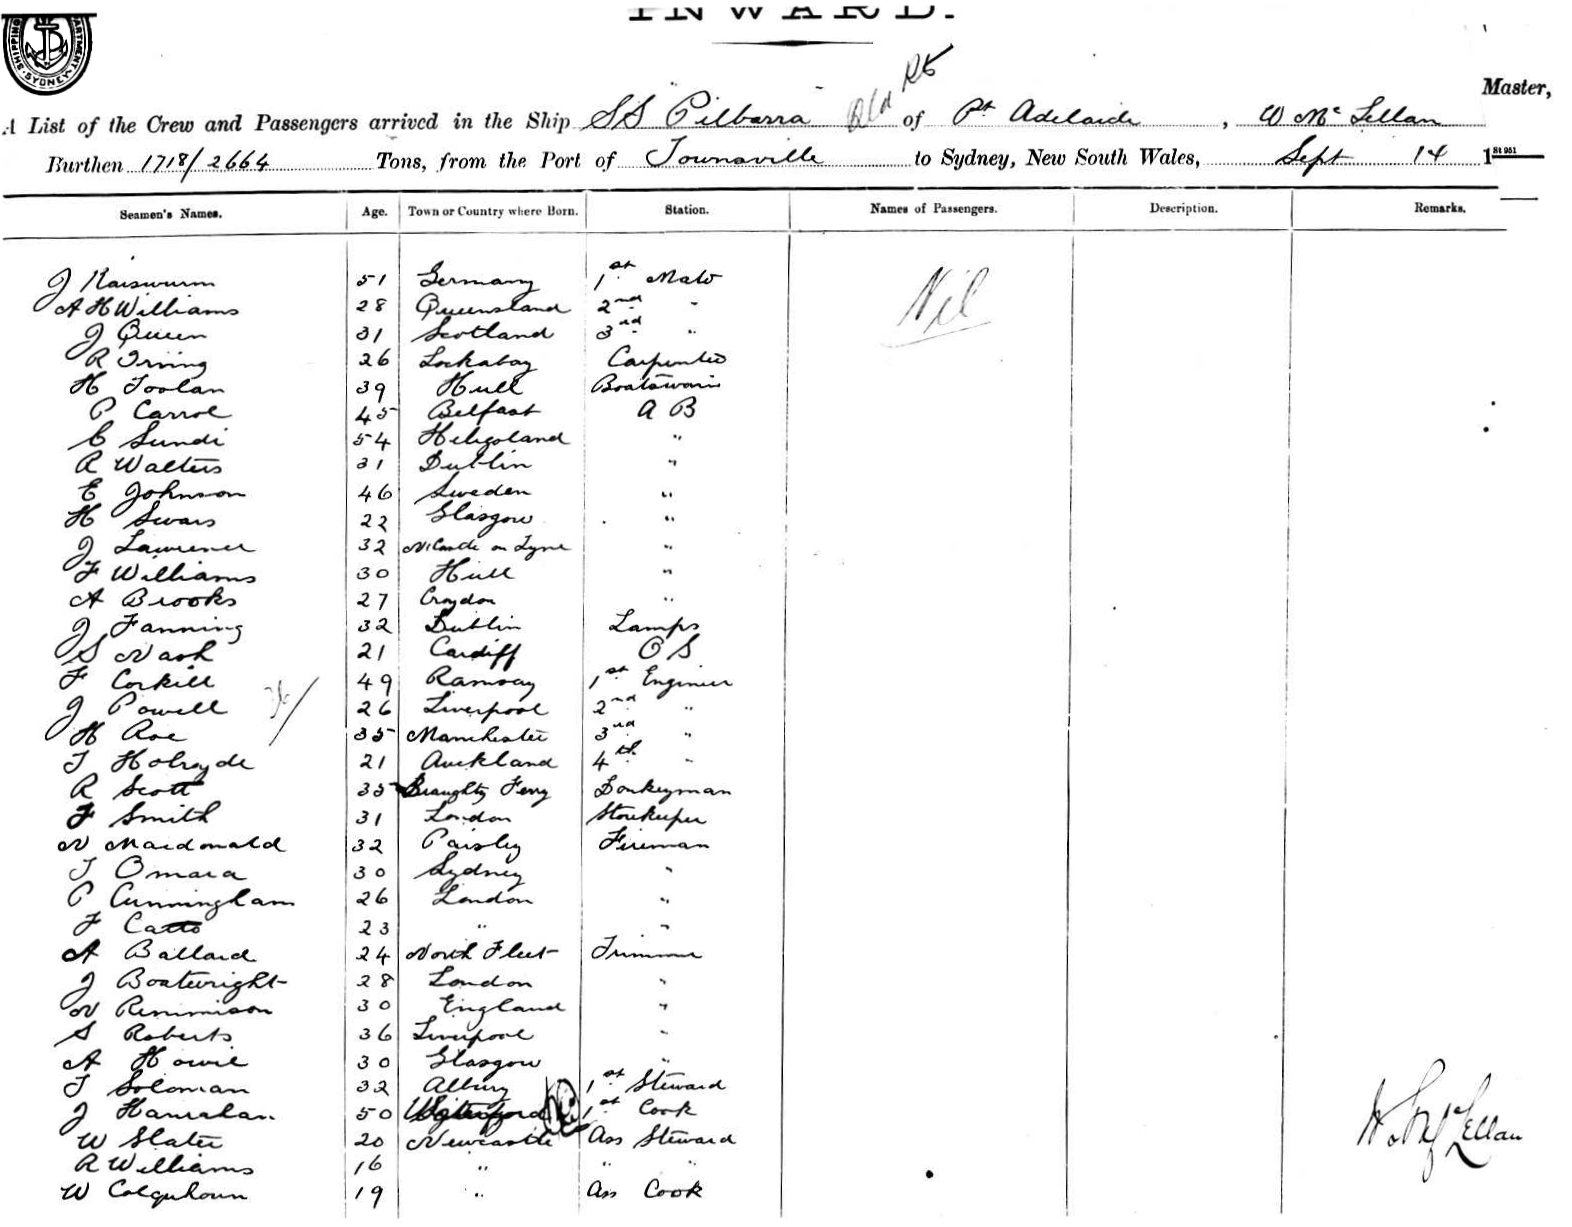 INWARD.
SHIPPING DEPARTMENT. SYDNEY.
A List of the Crew and Passengers arrived in the Ship SS Pilbarra of Pt Adelaide, W McLellan Master,
Burthen 1718/2664 Tons, from the Port of Townsville to Sydney, New South Wales, Sept 14 1
St 951
Seamen's Names. Age. Town or Country where Born. Station. Names of Passengers. Description. Remarks.
J Kaiswurm 51 Germany 1st Mate Nil
A H Williams 28 Queensland 2nd "
J Queen 31 Scotland 3rd "
R Irving 26 Carpenter
H Toolan 39 Hull Boatswain
P Carrol 45 Belfast A B
C Sundi 54 Heligoland "
R Walters 31 Dublin "
E Johnson 46 Sweden "
H Swars 22 Glasgow "
J Lawrence 32 N'Castle on Tyne "
F Williams 30 Hull "
A Brooks 27 Croydon "
J Fanning 32 Dublin Lamps
S Nash 21 Cardiff O S
F Corkill 49 Ramsay 1st Engineer
J Powell 26 Liverpool 2nd "
H Roe 35 Manchester 3rd "
T Holroyde 21 Auckland 4th "
R Scott 35 Braughty Ferry Donkeyman
F Smith 31 London Storekeeper
N Macdonald 32 Paisley Fireman
T Omara 30 Sydney "
P Cunningham 26 London "
F Catto 23 " "
A Ballard 24 North Fleet Trimmer
J Boatwright 28 London "
N Rennison 30 England "
S Roberts 36 Liverpool "
A Howie 30 Glasgow "
T Soloman 32 Albury 1st Steward
J Hanrahan 50 Waterford 1st Cook
W Slater 20 Newcastle Ass Steward
R Williams 16 " " "
W Colquhoun 19 " Ass Cook
W McLellan